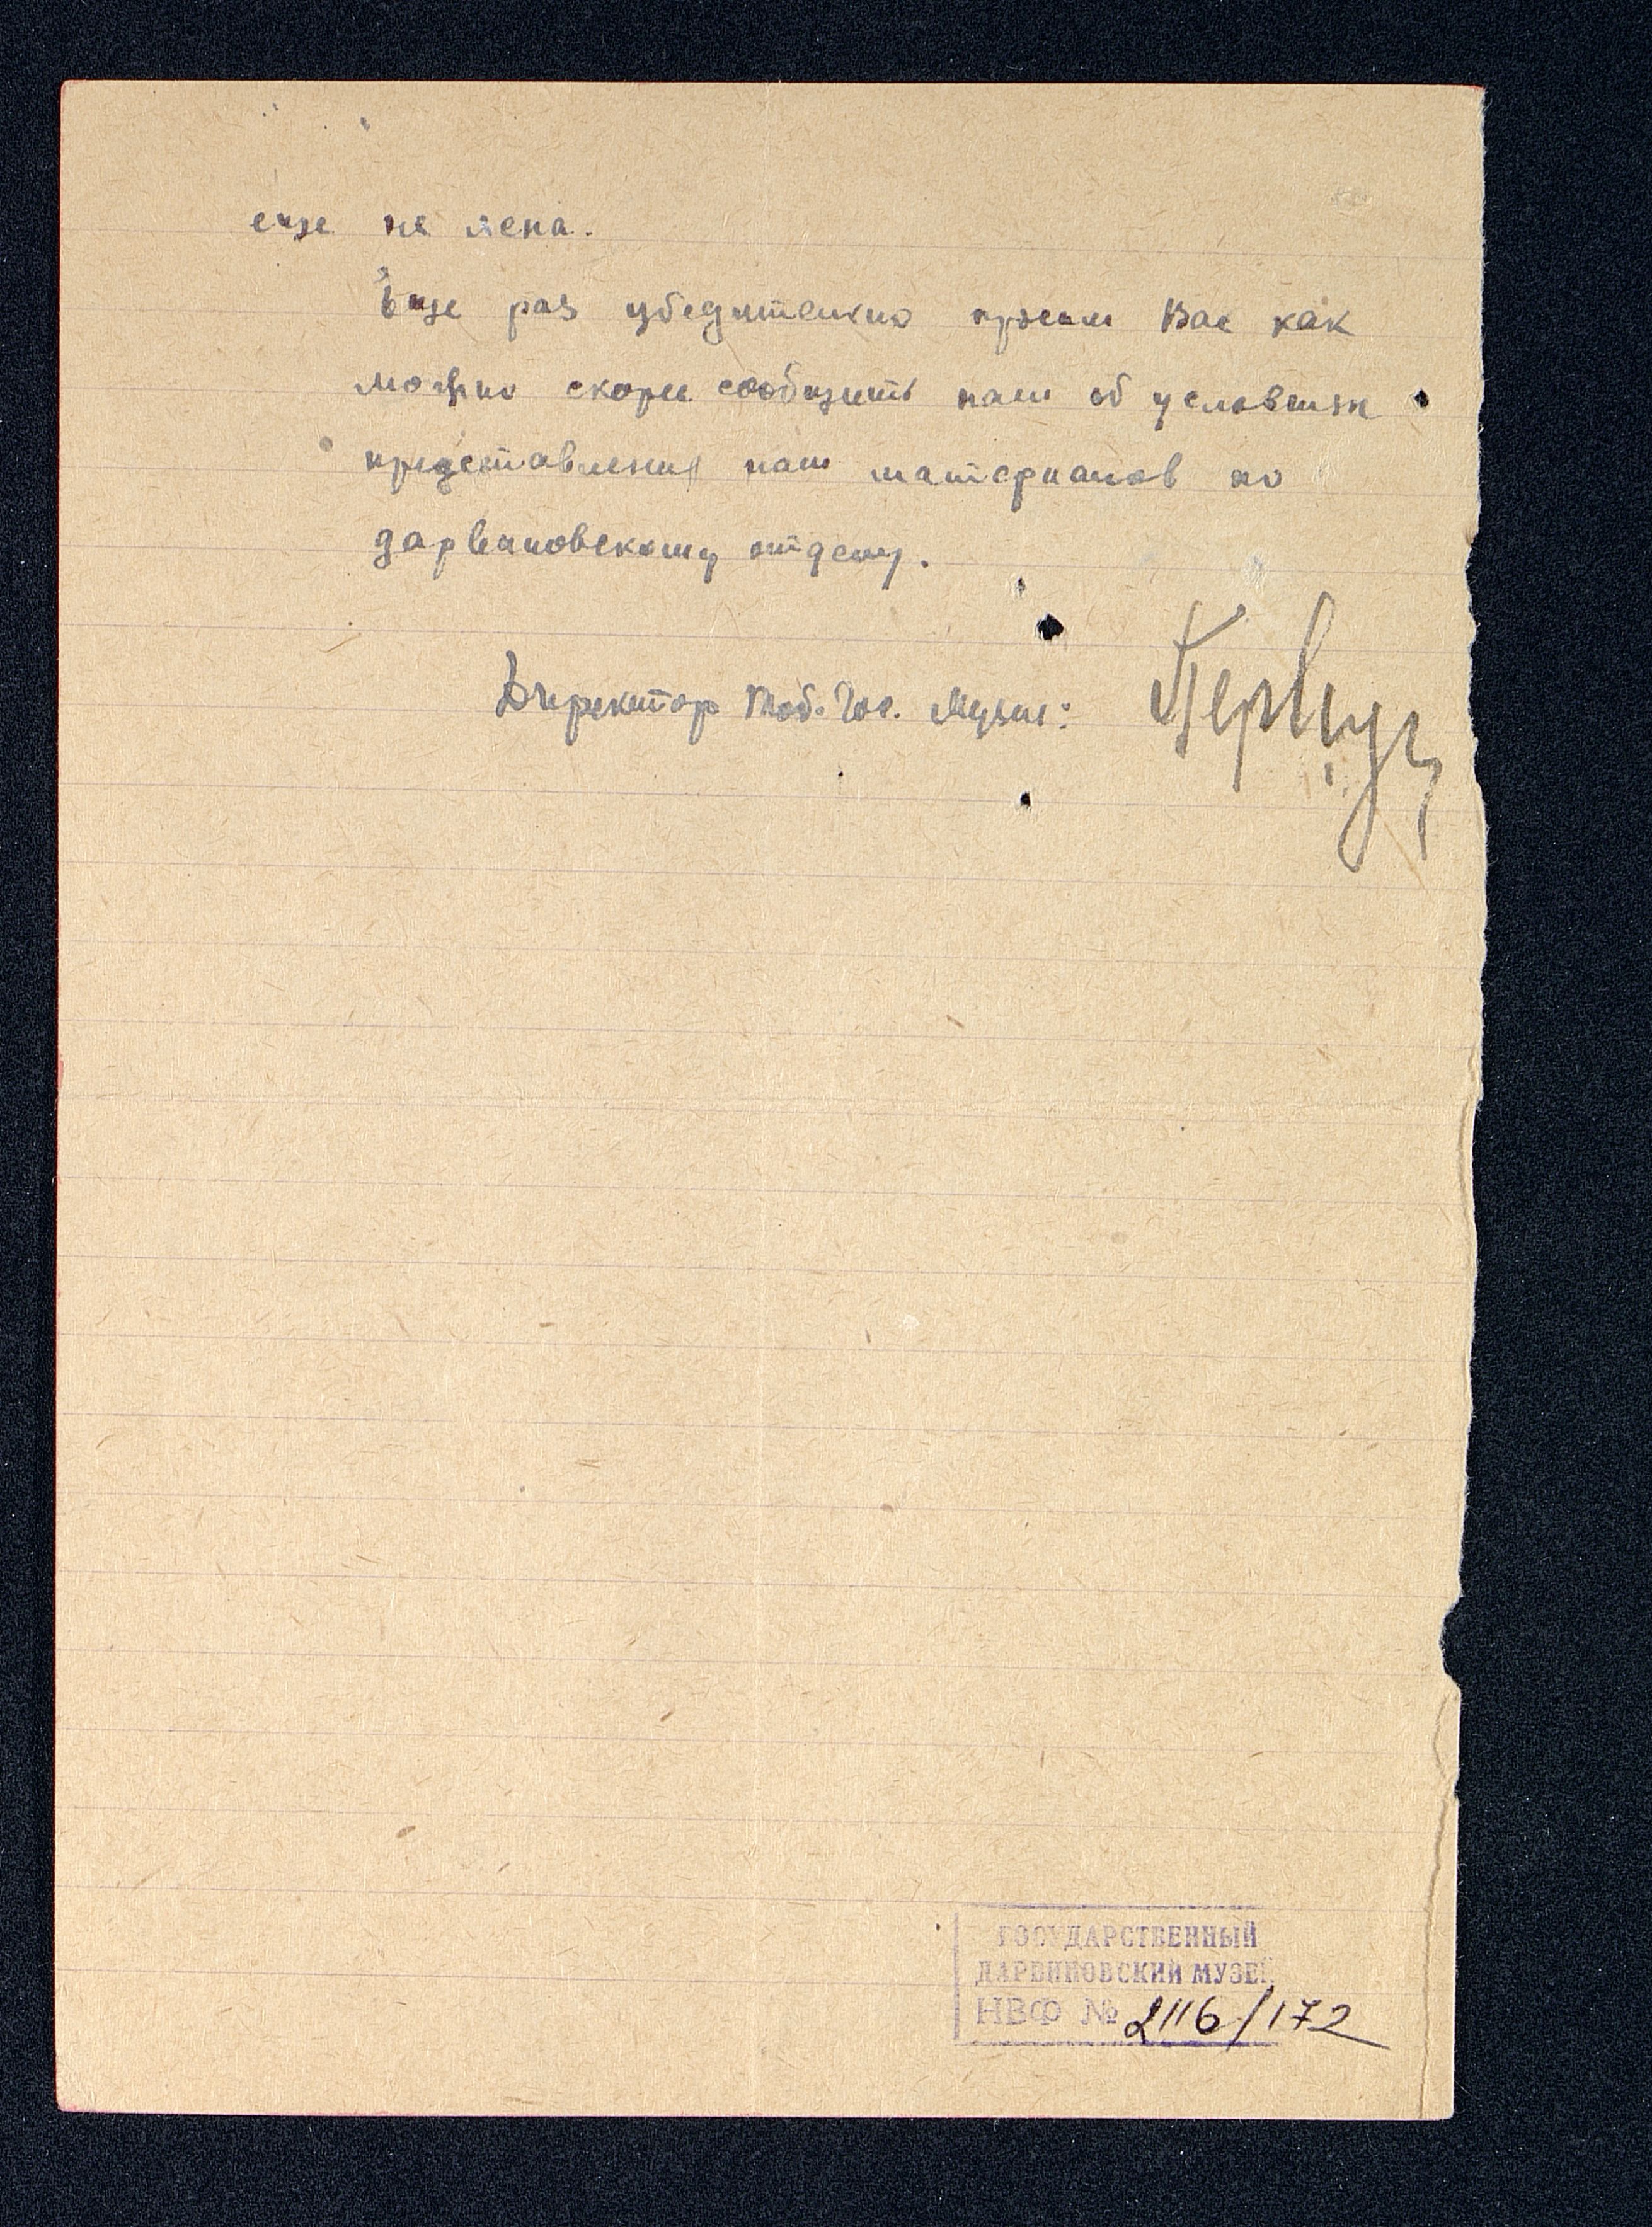 еще не ясна.
Еще раз убедительно просим Вас как
можно скорее сообщить нам об условиях
представления нам материалов по
дарвиновскому отделу.
Директор Тоб. Гос. Музея:
ГОСУДАРСТВЕННЫЙ
ДАРВИНОВСКИЙ МУЗЕЙ
НВФ № 2116/172